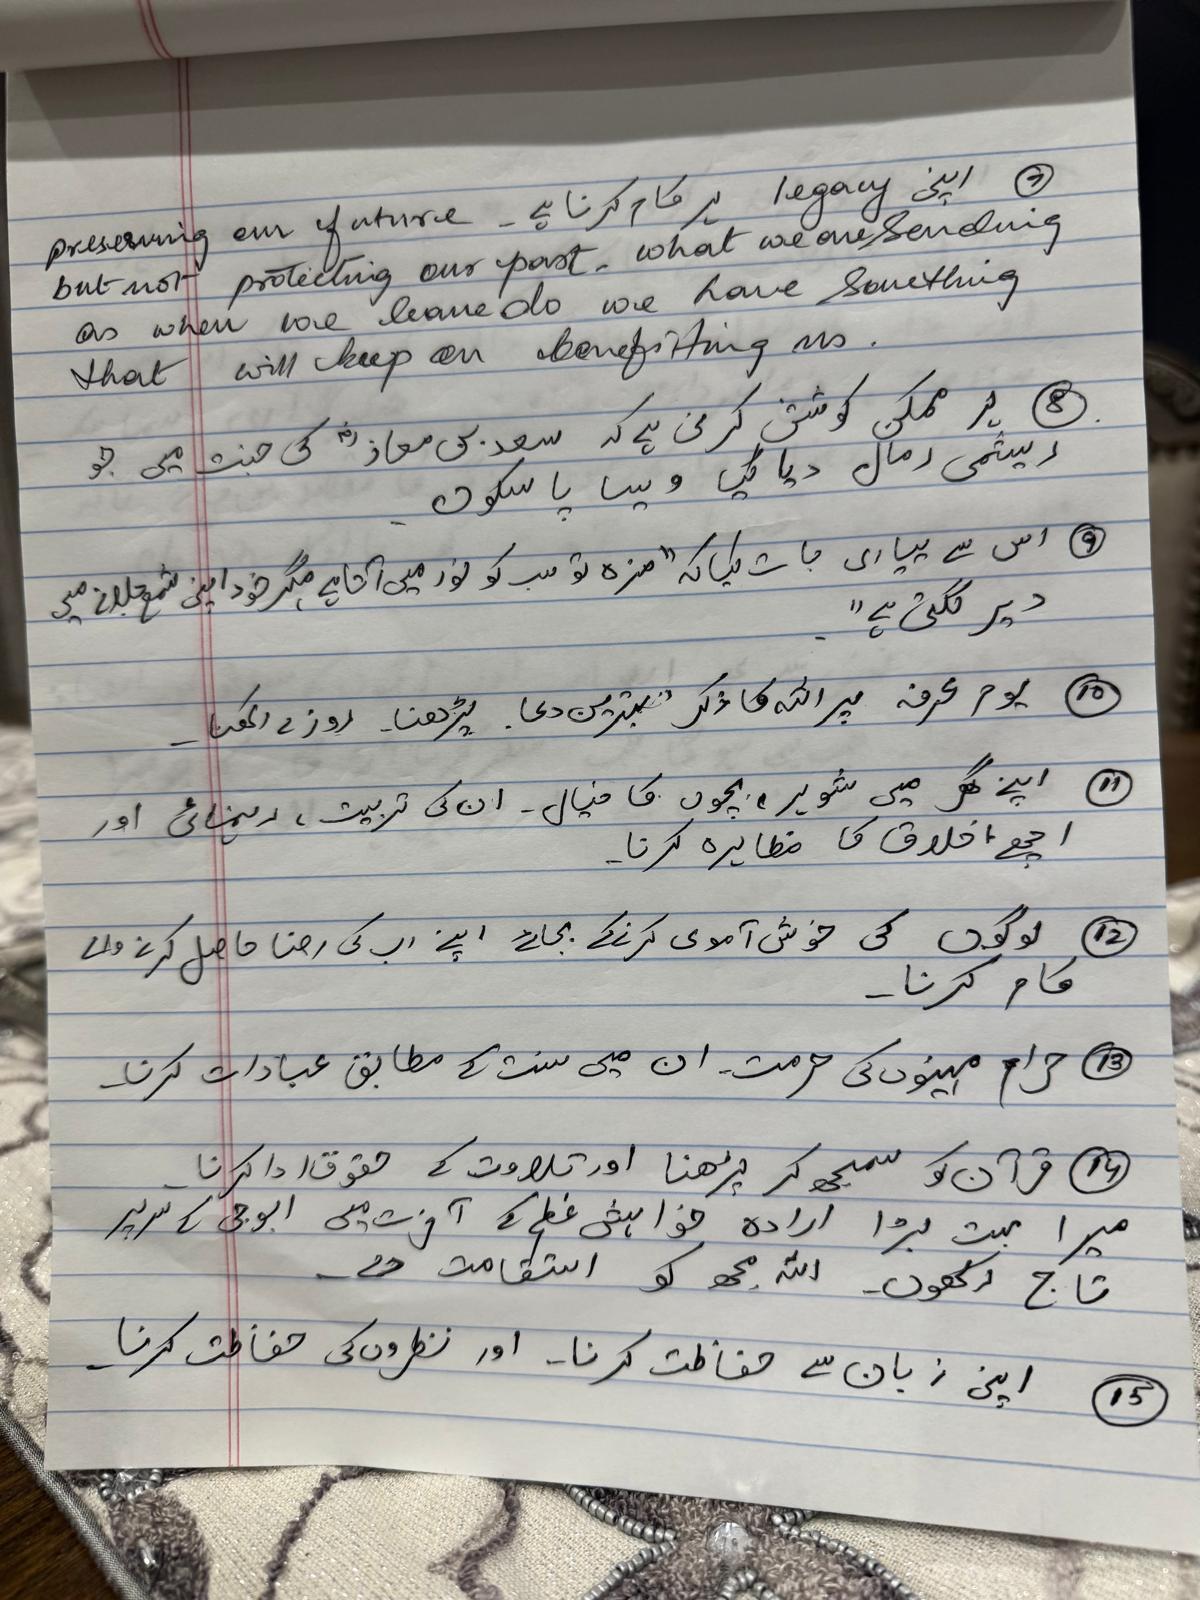 ⑦ اپنی legacy پر کام کرنا ہے۔ preserving our future
but not protecting our past. what we are sending
as when we leave do we have something
that will keep on benefitting us.
⑧ ہر ممکن کوشش کرنی ہے کہ سعد بن معاذؓ کی جنت میں جو
ریشمی رمال دیا گیا ویسا پا سکوں۔
⑨ اس سے پیاری بات کیا کہ "مزہ تو سب کو نور میں آتا ہے مگر خود اپنی شمع جلانے میں
دیر لگتی ہے"۔
⑩ یوم عرفہ پر اللہ کا ذکر بہترین دعا۔ پڑھنا۔ روزے رکھنا۔
⑪ اپنے گھر میں شوہر، بچوں کا خیال۔ ان کی تربیت، رہنمائی اور
اچھے اخلاق کا مظاہرہ کرنا۔
⑫ لوگوں کی خوش آمدی کرنے کے بجائے اپنے رب کی رضا حاصل کرنے والے
کام کرنا۔
⑬ حرام مہینوں کی حرمت۔ ان میں سنت کے مطابق عبادات کرنا۔
⑭ قرآن کو سمجھ کر پڑھنا اور تلاوت کے حقوق ادا کرنا۔
میرا بہت بڑا ارادہ خواہش ہے کے آخرت میں ابو جی کے سر پر
تاج رکھوں۔ اللہ مجھ کو استقامت دے۔
⑮ اپنی زبان سے حفاظت کرنا۔ اور نظروں کی حفاظت کرنا۔